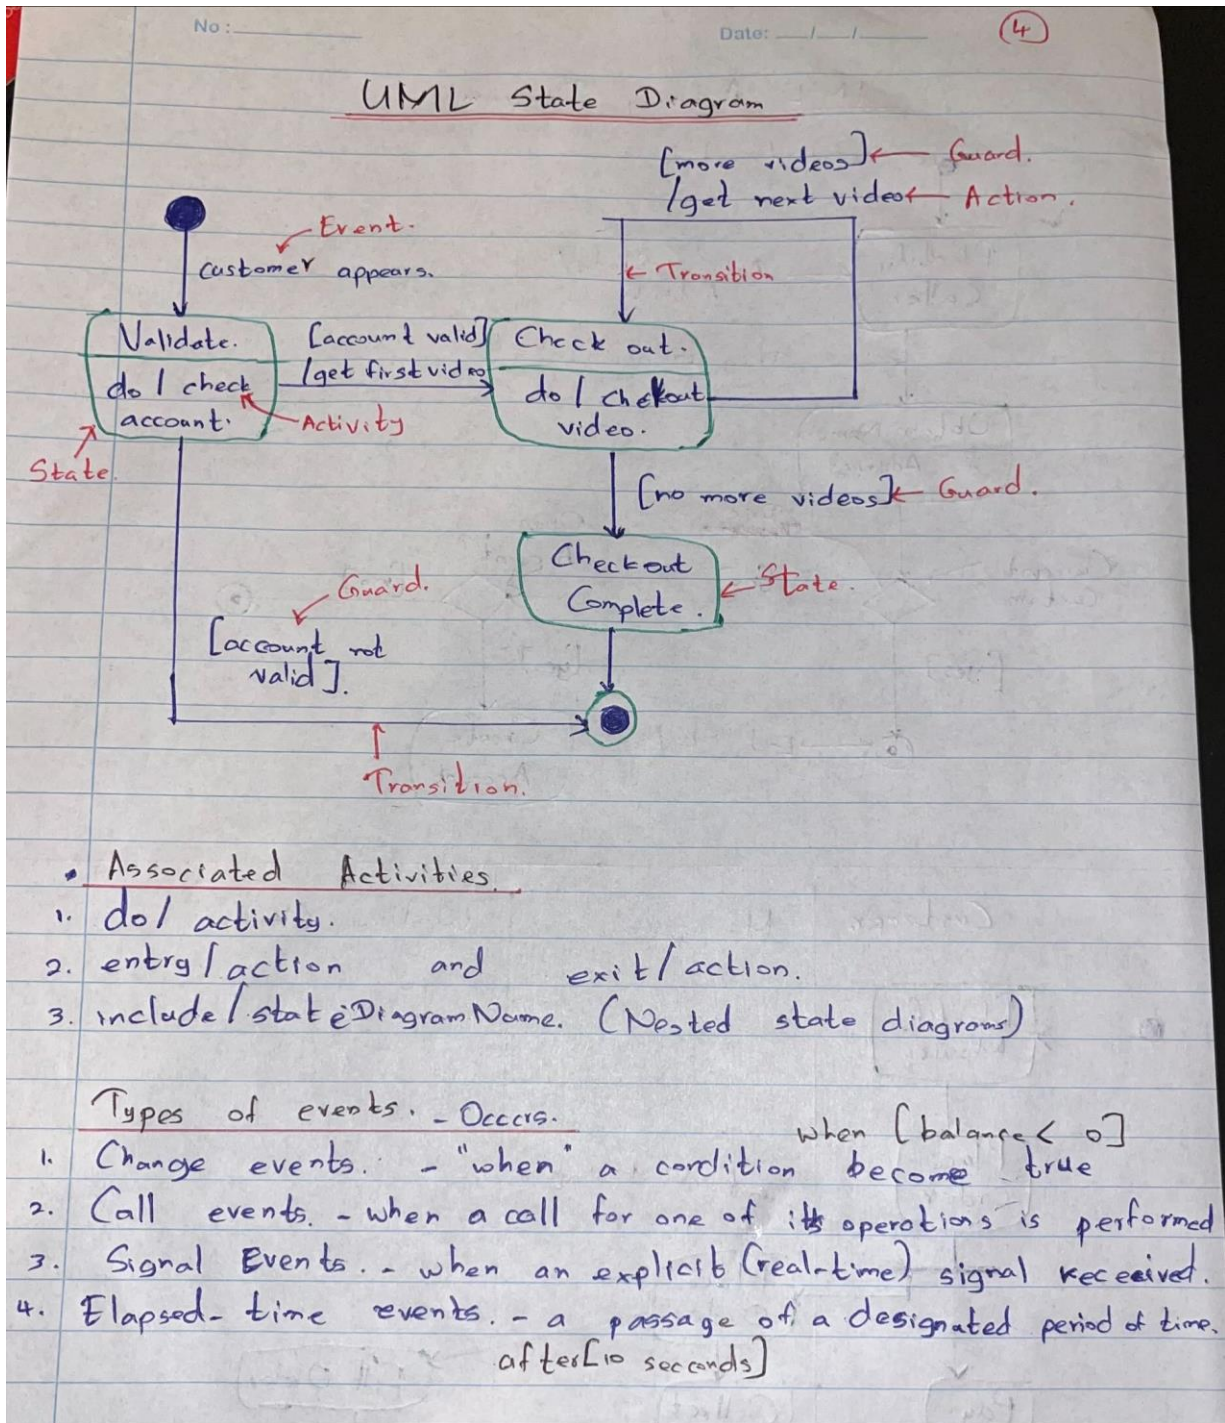 No :
Date: __/__/__
4
UML State Diagram
[more videos] Guard.
/get next video Action.
Event.
customer appears.
Transition
Validate.
[account valid]
Check out.
do / check
account.
/get first video
do / checkout
video.
Activity
State
[no more videos] Guard.
Checkout
Complete.
State.
Guard.
[account not
valid].
Transition.
• Associated Activities.
1. do/ activity.
2. entry/action and exit/action.
3. include/stateDiagramName. (Nested state diagrams)
Types of events. - Occcrs.
when [balance < 0]
1. Change events. - "when" a condition become true
2. Call events. - when a call for one of its operations is performed
3. Signal Events. - when an explicit (real-time) signal receeived.
4. Elapsed-time events. - a passage of a designated period of time.
after[10 secconds]